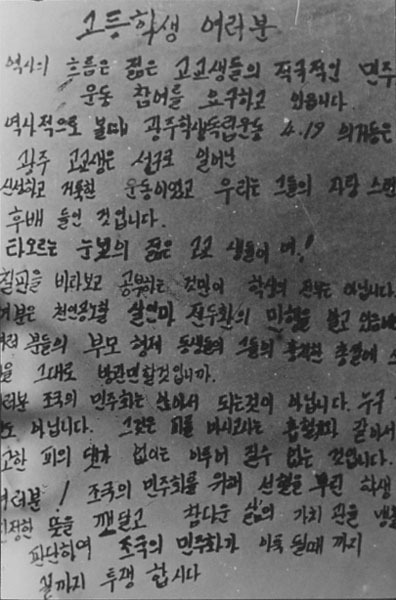 고등학생 여러분
역사의 흐름은 젊은 고교생들의 적극적인 민주
운동 참여를 요구하고 있읍니다.
역사적으로 볼때 광주학생독립운동 4.19 의거등은
광주 고교생은 선구로 일어난
신성하고 거룩한 운동이였고 우리는 그들의 자랑 스런
후배 들인 것입니다.
타오르는 눈빛의 젊은 고교 생들이 여!
칠판을 바라보고 공부하는 것만이 학생의 전부는 아닙니다.
러분은 천인공노할 살인마 전두환의 만행을 보고 있읍니
러 분들의 부모 형제 동생들의 그들의 총칼에
을 그대로 방관만할것입니까.
러분 조국의 민주화는 앉아서 되는것이 아닙니다. 누구
도 아닙니다. 그것은 피를 마시고사는 같아서
고한 피의 댓가 없이는 이루어 질수 없는 것입니다.
여러분! 조국의 민주화를 위해 선혈을 뿌린 학생
진정한 뜻을 깨달고 참다운 삶의 가치 관을 냉
판단하여 조국의 민주화가 이룩 될때 까지
끝까지 투쟁 합시다